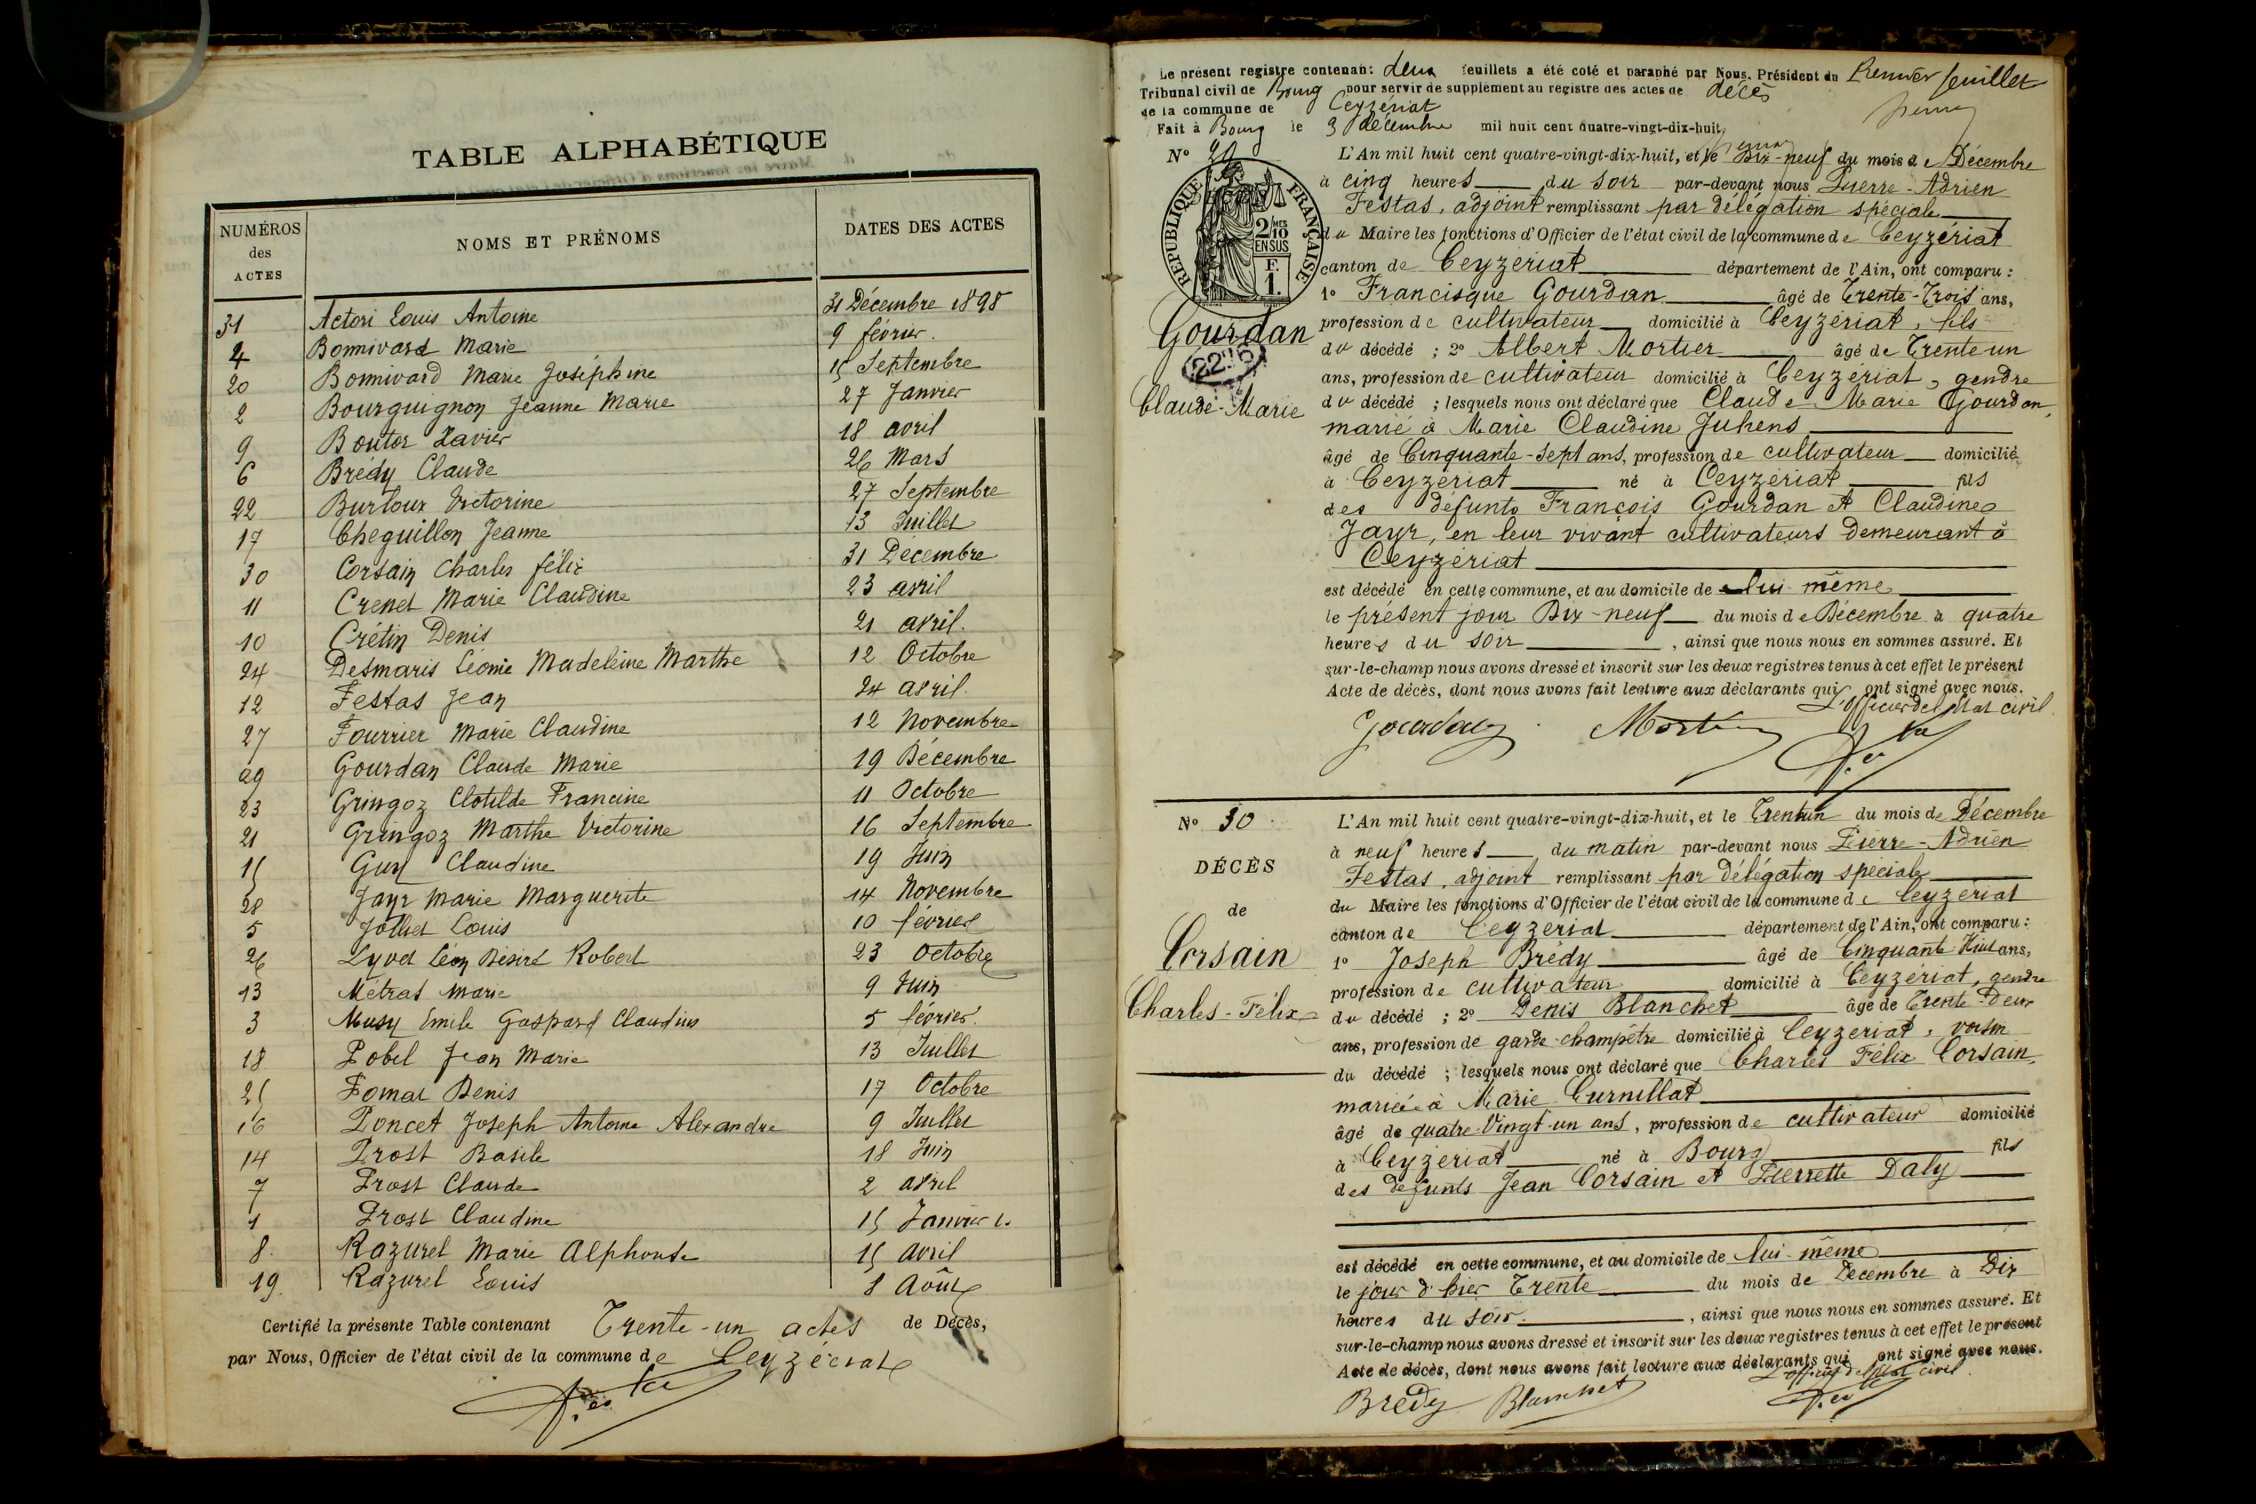 TABLE ALPHABÉTIQUE
NUMÉROS des ACTES
NOMS ET PRÉNOMS
DATES DES ACTES
31 Actori Louis Antoine 31 Décembre 1898
4 Bonnivard Marie 9 février.
20 Bonnivard Marie Joséphine 15 Septembre
2 Bourguignon Jeanne Marie 27 Janvier
9 Boutor Xavier 18 avril
6 Brédy Claude 26 Mars
22 Burtoux Victorine 27 Septembre
17 Cheguillon Jeanne 13 Juillet
30 Corsain Charles félix 31 Décembre
11 Crenet Marie Claudine 23 avril
10 Crétin Denis 21 avril.
24 Desmaris Léonie Madeleine Marthe 12 Octobre
12 Festas Jean 24 avril.
27 Fourrier Marie Claudine 12 Novembre
29 Gourdan Claude Marie 19 Décembre
23 Gringoz Clotilde Francine 11 Octobre
21 Gringoz Marthe Victorine 16 Septembre
15 Guy Claudine 19 Juin
28 Jayr Marie Marguerite 14 Novembre
5 Jolliet Louis 10 février
26 Lyvet Léon Désiré Robert 23 Octobre
13 Métrat Marie 9 Juin
3 Musy Emile Gaspard Claudius 5 février.
18 Pobel Jean Marie 13 Juillet
25 Pomat Denis 17 Octobre
16 Poncet Joseph Antoine Alexandre 9 Juillet
14 Prost Basile 18 Juin
7 Prost Claude 2 avril
1 Prost Claudine 15 Janvier
8. Razurel Marie Alphonse 15 avril
19. Razurel Louis 8 Août
Certifié la présente Table contenant Trente-un actes de Décès,
par Nous, Officier de l'état civil de la commune de Ceyzériat
Le présent registre contenant deux feuillets a été coté et paraphé par Nous, Président du Premier feuillet
Tribunal civil de Bourg pour servir de supplément au registre des actes de décès
de la commune de Ceyzériat
Fait à Bourg le 9 décembre mil huit cent quatre-vingt-dix-huit,
N° 29
RÉPUBLIQUE FRANÇAISE
2/10MES
EN SUS
F.
1.
Gourdan
Claude-Marie
L'An mil huit cent quatre-vingt-dix-huit, et le Dix-neuf du mois de Décembre
à cinq heures du soir par-devant nous Pierre-Adrien
Festas, adjoint remplissant par délégation spéciale
du Maire les fonctions d'Officier de l'état civil de la commune de Ceyzériat
canton de Ceyzériat département de l'Ain, ont comparu :
1° Francisque Gourdan âgé de Trente-Trois ans,
profession de cultivateur domicilié à Ceyzériat, fils
du décédé ; 2° Albert Mortier âgé de Trente un
ans, profession de cultivateur domicilié à Ceyzériat, gendre
du décédé ; lesquels nous ont déclaré que Claude-Marie Gourdan,
marié à Marie Claudine Juhens
âgé de Cinquante-Sept ans, profession de cultivateur domicilié
à Ceyzériat né à Ceyzériat fils
des défunts François Gourdan et Claudine
Jayr, en leur vivant cultivateurs demeurant à
Ceyzériat
est décédé en cette commune, et au domicile de lui même
le présent jour Dix-neuf du mois de Décembre à quatre
heures du soir, ainsi que nous nous en sommes assuré. Et
sur-le-champ nous avons dressé et inscrit sur les deux registres tenus à cet effet le présent
Acte de décès, dont nous avons fait lecture aux déclarants qui ont signé avec nous.
L'officier de l'état civil
Gourdan Mortier
N° 30
DÉCÈS
de
Corsain
Charles-Félix
L'An mil huit cent quatre-vingt-dix-huit, et le Trentun du mois de Décembre
à neuf heures du matin par-devant nous Pierre-Adrien
Festas, adjoint remplissant par délégation spéciale
du Maire les fonctions d'Officier de l'état civil de la commune de Ceyzériat
canton de Ceyzériat département de l'Ain, ont comparu :
1° Joseph Brédy âgé de Cinquante Huit ans,
profession de cultivateur domicilié à Ceyzériat, gendre
du décédé ; 2° Denis Blanchet âgé de Trente-Deux
ans, profession de garde-champêtre domicilié à Ceyzériat, voisin
du décédé ; lesquels nous ont déclaré que Charles Félix Corsain,
marié à Marie Curnillat
âgé de quatre-Vingt-un ans, profession de cultivateur domicilié
à Ceyzériat né à Bourg fils
des défunts Jean Corsain et Pierrette Daly
est décédé en cette commune, et au domicile de lui-même
le jour d'hier Trente du mois de Décembre à Dix
heures du soir., ainsi que nous nous en sommes assuré. Et
sur-le-champ nous avons dressé et inscrit sur les deux registres tenus à cet effet le présent
Acte de décès, dont nous avons fait lecture aux déclarants qui ont signé avec nous.
L'officier de l'état civil.
Bredy Blanchet